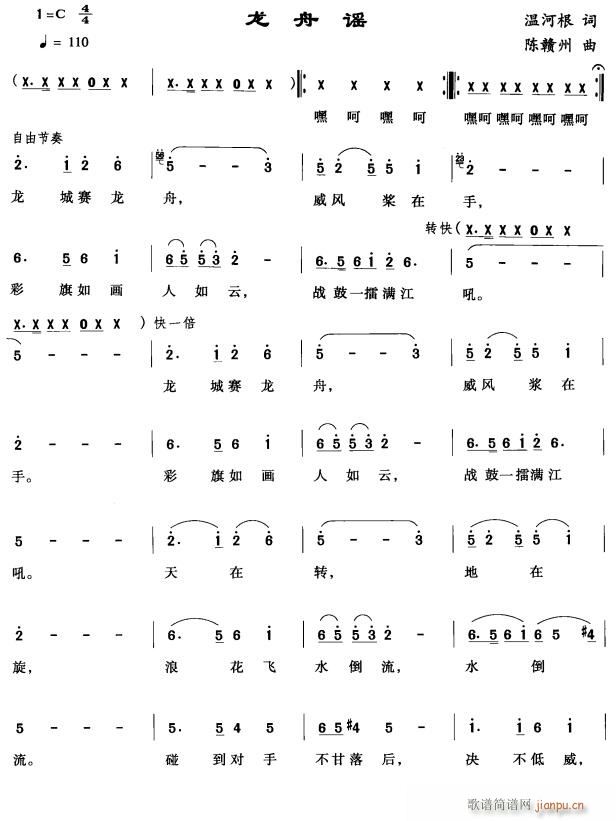 1=C 4/4 龙舟谣 温河根 词
♩= 110 陈赣州 曲
(X. X X X 0 X X | X. X X X 0 X X) ‖: X X X X :‖: X X X X X X X X :‖
嘿 呵 嘿 呵 嘿呵 嘿呵 嘿呵 嘿呵
自由节奏
2. 1 2 6 | 5 - - 3 | 5 2 5 5 1 | 2 - - -
龙 城赛龙 舟, 威风 桨在 手,
转快(X. X X X 0 X X
6. 5 6 1 | 6 5 5 3 2 - | 6. 5 6 1 2 6. | 5 - - -
彩 旗如画 人如云, 战鼓一擂满江 吼。
X. X X X 0 X X )快一倍
5 - - - | 2. 1 2 6 | 5 - - 3 | 5 2 5 5 1
龙 城赛龙 舟, 威风 浆在
2 - - - | 6. 5 6 1 | 6 5 5 3 2 - | 6. 5 6 1 2 6.
手。 彩 旗如画 人如云, 战鼓一擂满江
5 - - - | 2. 1 2 6 | 5 - - 3 | 5 2 5 5 1
吼。 天 在 转, 地 在
2 - - - | 6. 5 6 1 | 6 5 5 3 2 - | 6. 5 6 1 6 5 #4
旋, 浪 花飞 水倒流, 水 倒
5 - - - | 5. 5 4 5 | 6 5 #4 5 - | 1. 1 6 5
流。 碰 到对手 不甘落后, 决 不低威,
歌谱简谱网 jianpu.cn